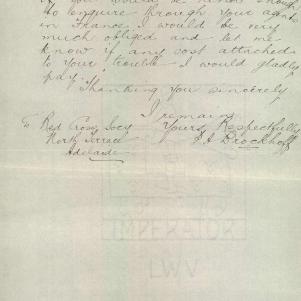 if you would be kind enough
to enquire through your agents
in France I would be very
much obliged and let me
know if any cost attached
to your trouble I would gladly
pay.
Thanking you sincerely
I remain
To Red Cross Socy Yours Respectfully
North Terrace J A Brockhoff
Adelaide
IMPERATOR
LWV